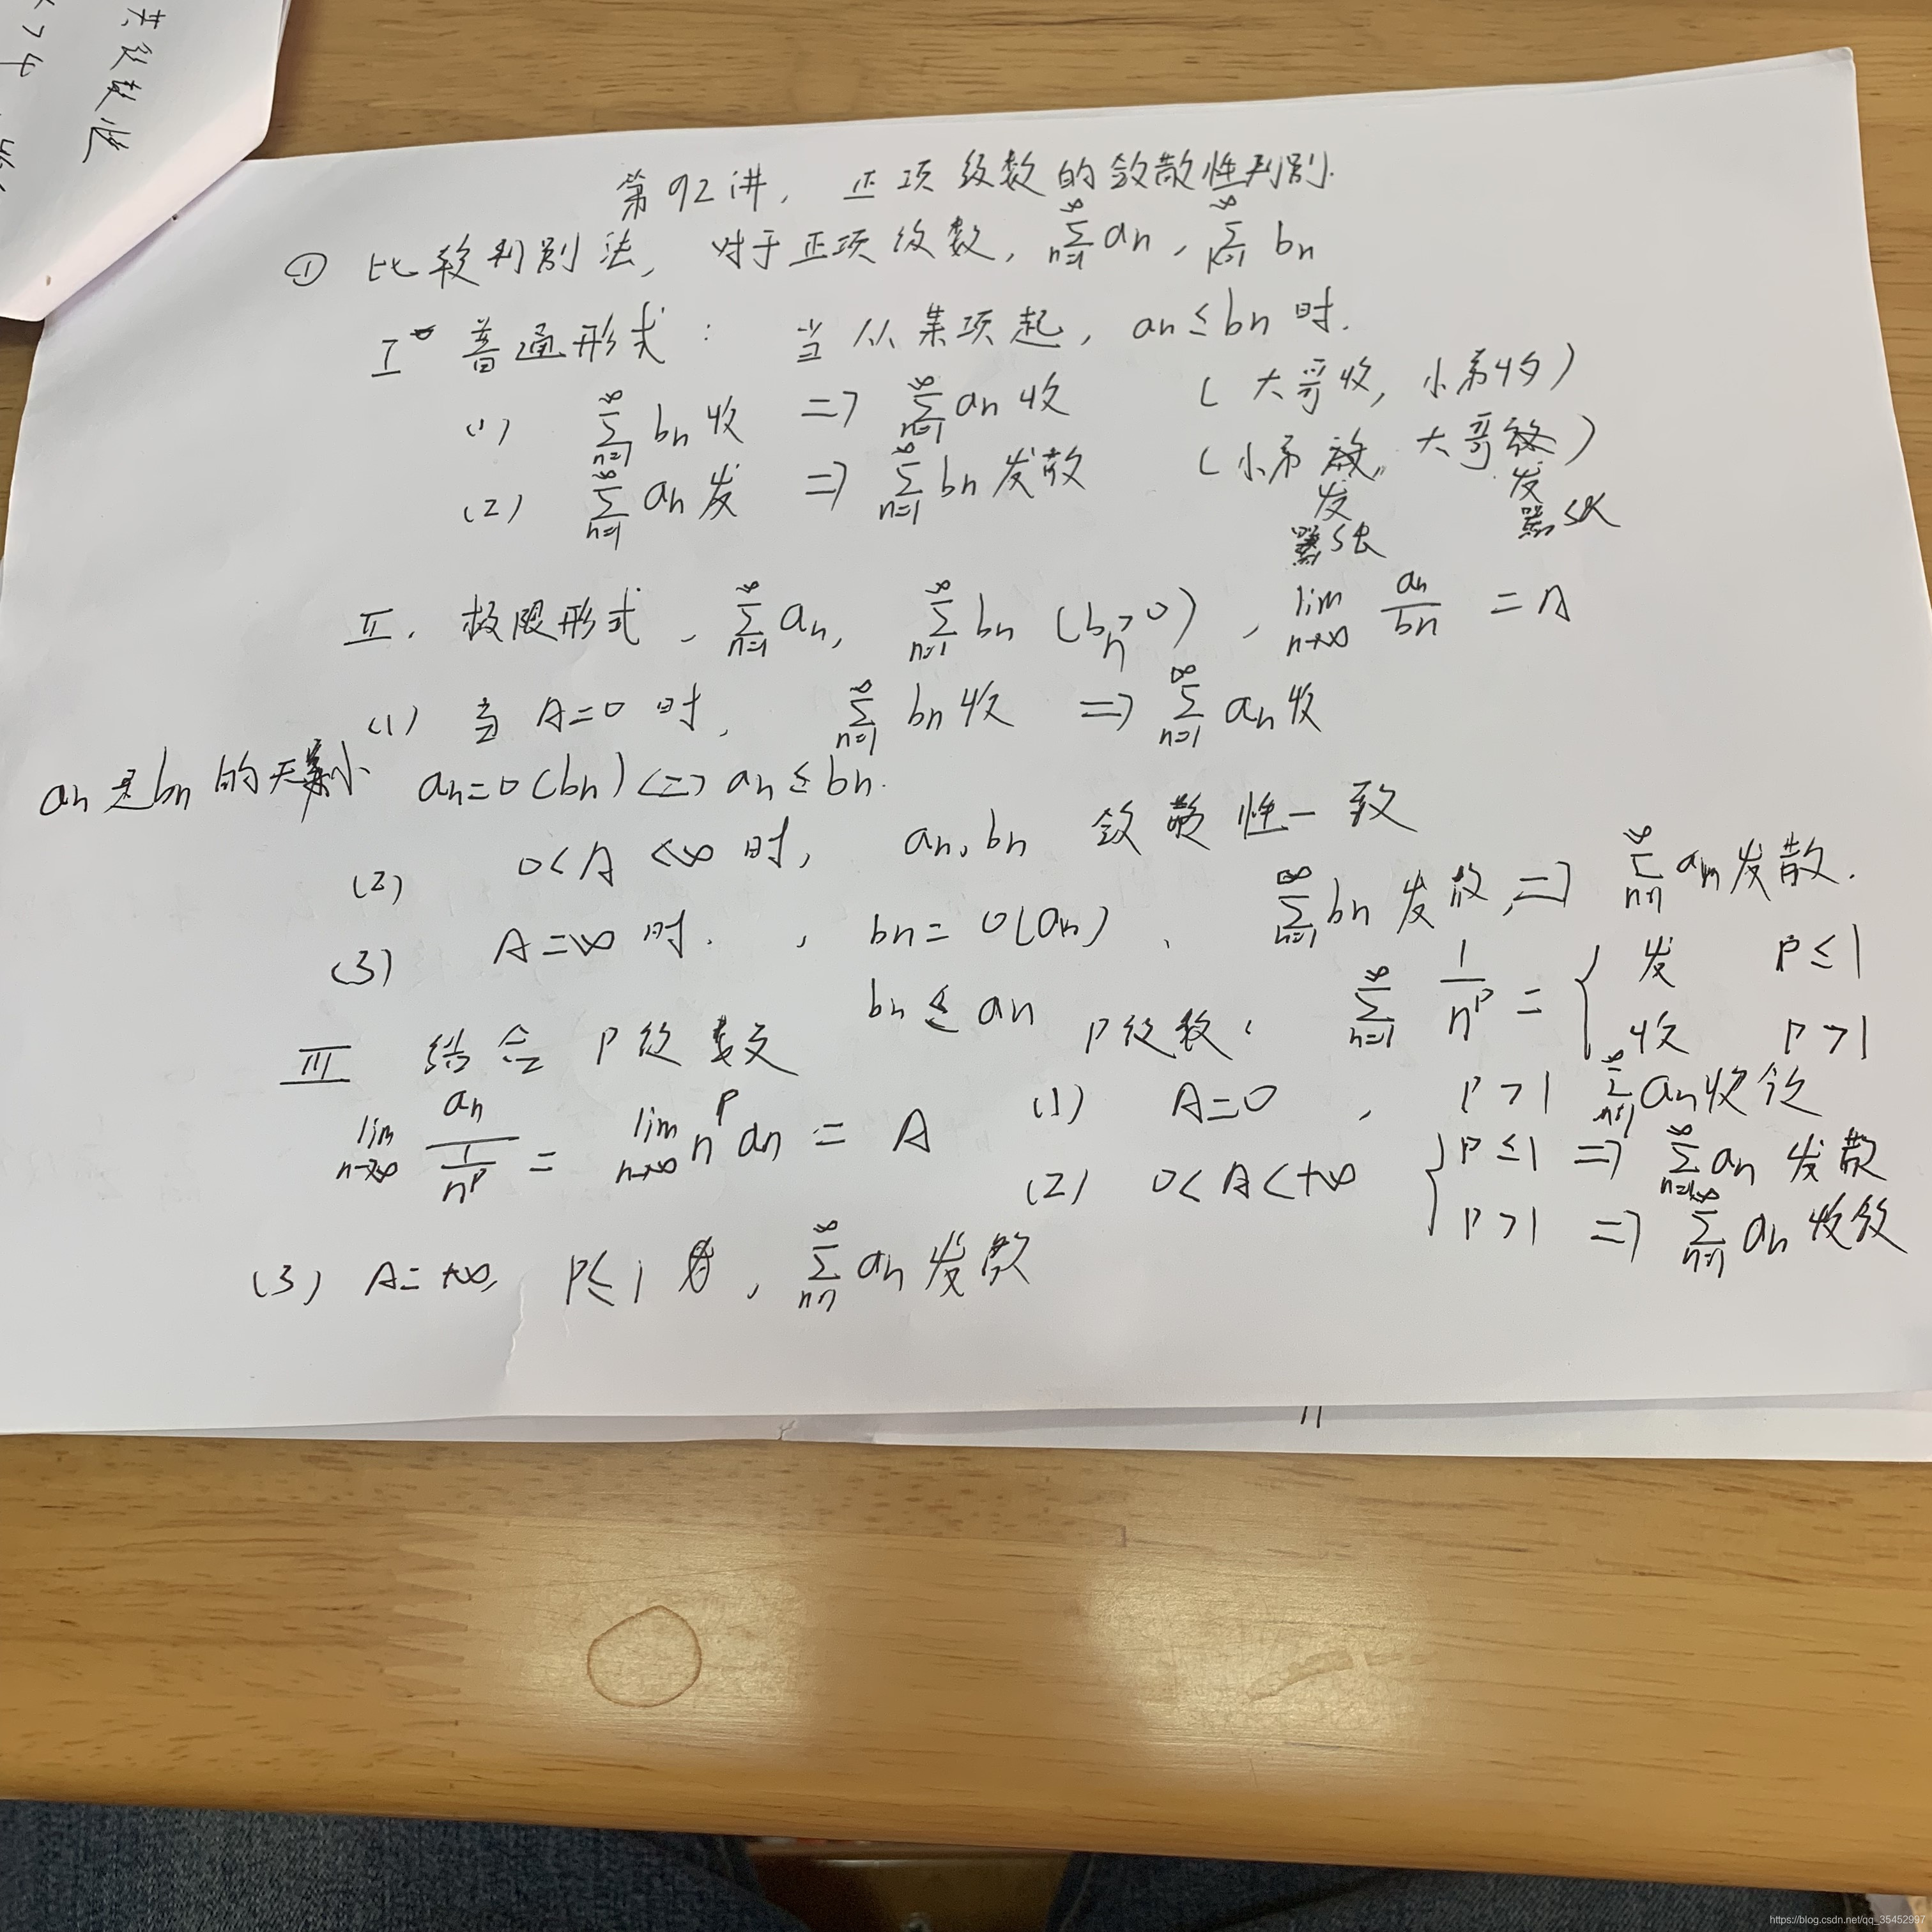 第92讲, 正项级数的敛散性判别.
① 比较判别法, 对于正项级数, ∑_{n=1}^∞ an, ∑_{k=1}^∞ bn
I 普通形式: 当从某项起, an≤bn 时.
(1) ∑_{n=1}^∞ bn 收 => ∑_{n=1}^∞ an 收 (大哥收, 小弟收)
(2) ∑_{n=1}^∞ an 发 => ∑_{n=1}^∞ bn 发散 (小弟 大哥)
发 发
II. 极限形式, ∑_{n=1}^∞ an, ∑_{n=1}^∞ bn (bn>0), lim_{n→∞} an/bn = A
(1) 当 A=0 时, ∑_{n=1}^∞ bn 收 => ∑_{n=1}^∞ an 收
an是bn的无穷小 an=0(bn) <=> an≤bn.
(2) 0<A<∞ 时, an, bn 敛散性一致
(3) A=∞ 时, bn=0(an), ∑_{n=1}^∞ bn 发散, => ∑_{n=1}^∞ an 发散.
bn≤an
III 结合P级数 P级数: ∑_{n=1}^∞ 1/n^P = { 发 P≤1
收 P>1
lim_{n→∞} an/(1/n^P) = lim_{n→∞} n^P an = A (1) A=0, P>1 ∑_{n=1}^∞ an 收敛
(2) 0<A<+∞ { P≤1 => ∑_{n=1}^∞ an 发散
P>1 => ∑_{n=1}^∞ an 收敛
(3) A=+∞, P≤1, ∑_{n=1}^∞ an 发散
https://blog.csdn.net/qq_35452997